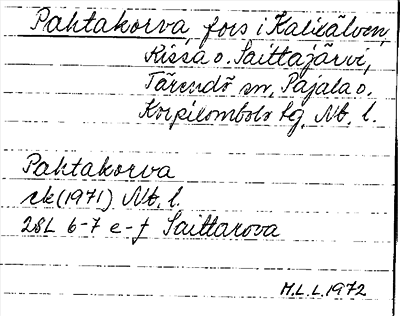 Pahtakorva, fors i Kalixälven,
Kissa o. Saittajärvi,
Tärendö sn, Pajala o.
Korpilombolo tg, Nb. l.
Pahtakorva
rk (1971) Nb. l.
28L 6-7 e-f Saittarova
M.L.L. 1972